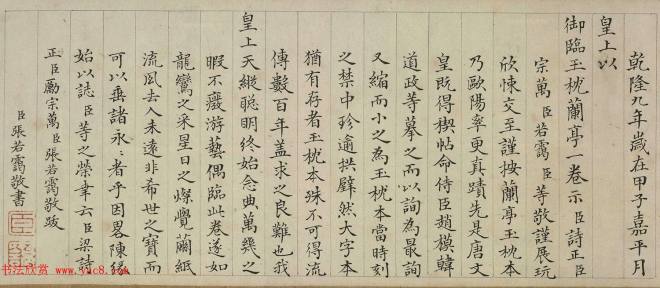 乾隆九年歲在甲子嘉平月
皇上以
御臨玉枕蘭亭一卷示臣詩正臣
宗萬臣若靄臣等敬謹展玩
欣悚交至謹按蘭亭玉枕本
乃歐陽率更真蹟先是唐文
皇既得稧帖命侍臣趙模韓
道政等摹之而以詢為最詢
又縮而小之為玉枕本當時刻
之禁中珍逾拱璧然大字本
猶有存者玉枕本殊不可得流
傳數百年蓋求之良難也我
皇上天縱聰明終始念典萬幾之
暇不廢游藝偶臨此卷遂如
龍鸞之采星日之燦覺繭紙
流風去人未遠非希世之寶而
可以垂諸永永者乎因畧陳緣
始以誌臣等之榮幸云臣梁詩
正臣勵宗萬臣張若靄敬跋
臣張若靄敬書
书法欣赏